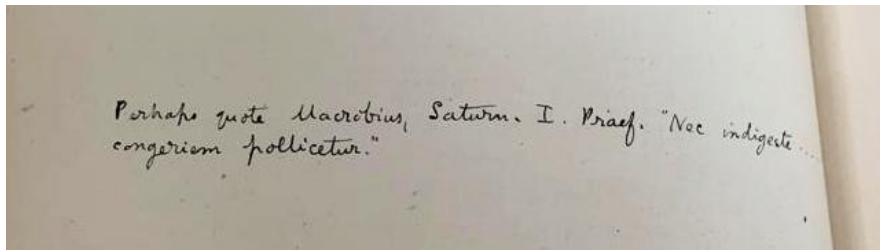 Perhaps quote Macrobius, Saturn. I. Praef. "Nec indigeste....
congeriem pollicetur."